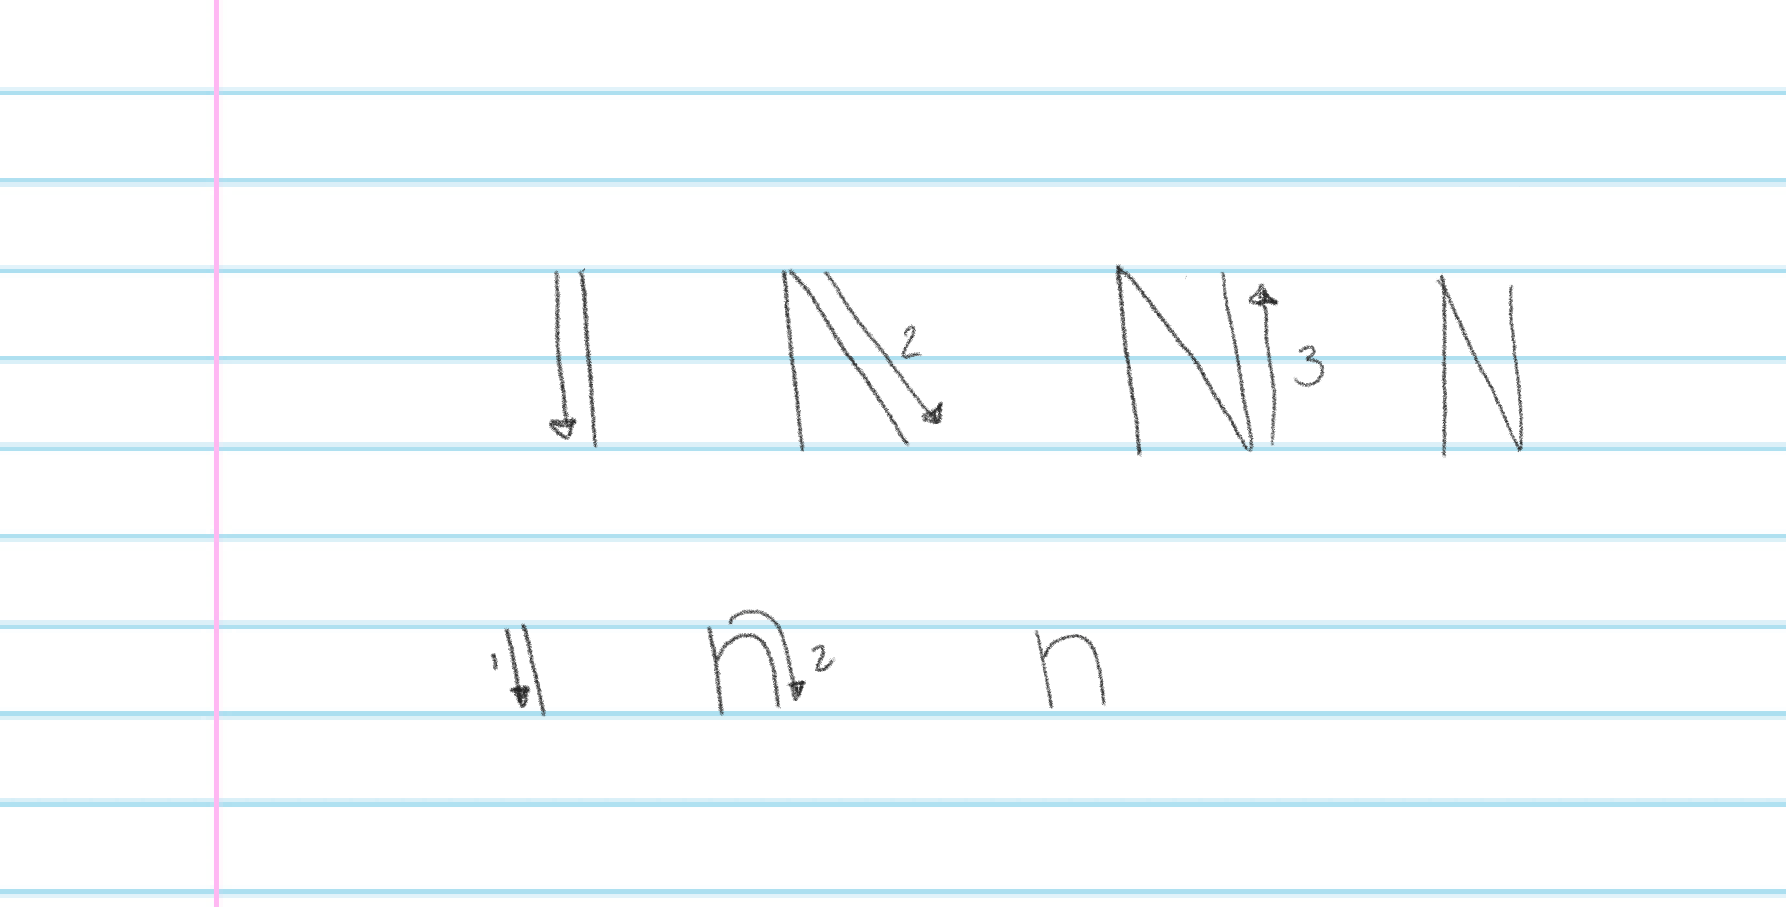 2 N 3 N
1 n 2 n